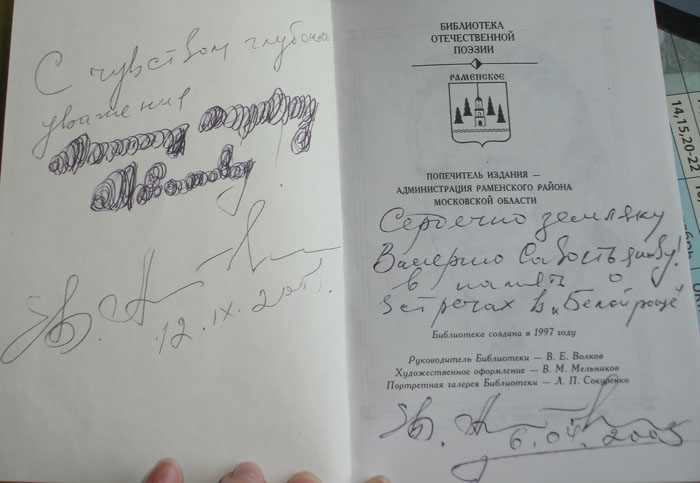 С чувством глубокого
уважения
12. IX. 2001.
БИБЛИОТЕКА
ОТЕЧЕСТВЕННОЙ
ПОЭЗИИ
РАМЕНСКОЕ
ПОПЕЧИТЕЛЬ ИЗДАНИЯ —
АДМИНИСТРАЦИЯ РАМЕНСКОГО РАЙОНА
МОСКОВСКОЙ ОБЛАСТИ
Сердечно земляку
Валерию Савостьянову!
в память о
встречах в „Белой роще"
Библиотека создана в 1997 году
Руководитель Библиотеки — В. Е. Волков
Художественное оформление — В. М. Мельников
Портретная галерея Библиотеки — Л. П. Сокуренко
6.04.2005
14,15,20-22